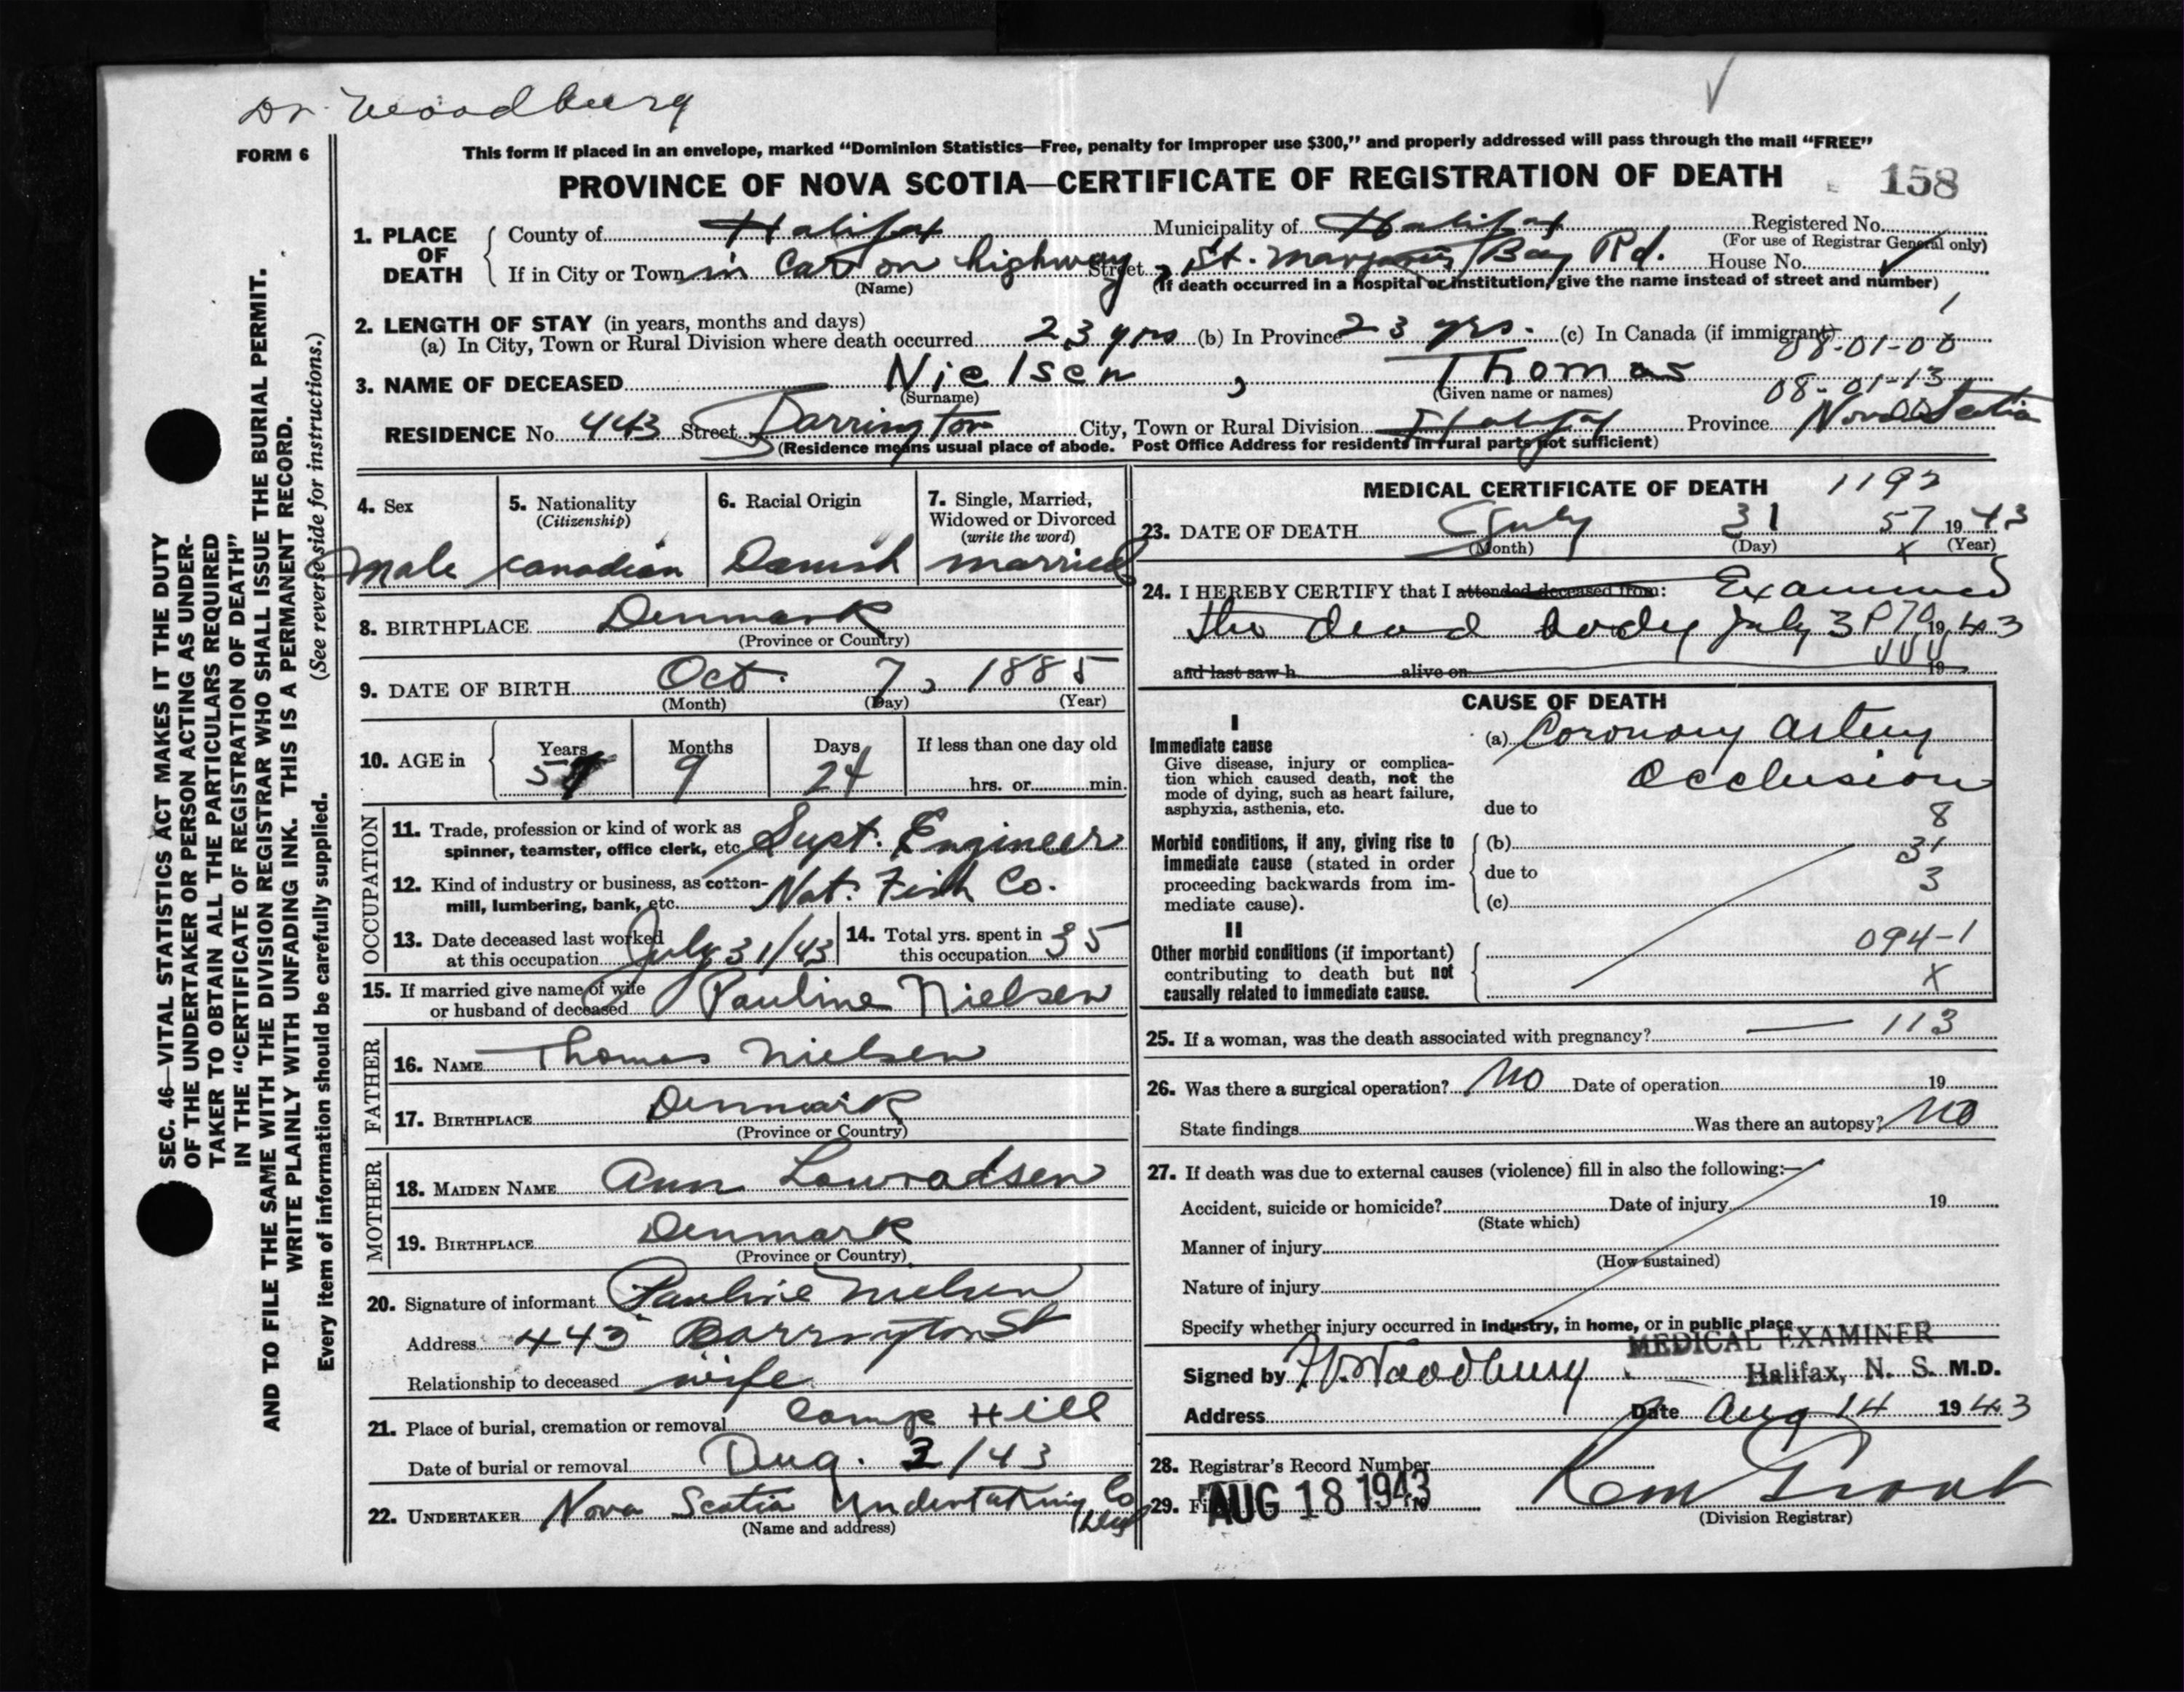 Dr. Woodbury
FORM 6
This form if placed in an envelope, marked “Dominion Statistics—Free, penalty for improper use $300,” and properly addressed will pass through the mail “FREE”
PROVINCE OF NOVA SCOTIA—CERTIFICATE OF REGISTRATION OF DEATH 158
1. PLACE OF DEATH
County of Halifax Municipality of Halifax Registered No.
(For use of Registrar General only)
If in City or Town in Car on highway Street St. Margarets Bay Rd. House No.
(Name) (If death occurred in a hospital or institution, give the name instead of street and number)
2. LENGTH OF STAY (in years, months and days)
(a) In City, Town or Rural Division where death occurred 23 yrs (b) In Province 23 yrs. (c) In Canada (if immigrant)
08-01-00
3. NAME OF DECEASED Nielsen , Thomas
(Surname) (Given name or names)
08-01-13
RESIDENCE No. 443 Street Barrington City, Town or Rural Division Halifax Province Nova Scotia
(Residence means usual place of abode. Post Office Address for residents in rural parts not sufficient)
4. Sex
male
5. Nationality
(Citizenship)
Canadian
6. Racial Origin
Danish
7. Single, Married,
Widowed or Divorced
(write the word)
married
8. BIRTHPLACE Denmark
(Province or Country)
9. DATE OF BIRTH Oct. 7, 1885
(Month) (Day) (Year)
10. AGE in
Years 57
Months 9
Days 24
If less than one day old
hrs. or min.
OCCUPATION
11. Trade, profession or kind of work as
spinner, teamster, office clerk, etc. Supt. Engineer
12. Kind of industry or business, as cotton-
mill, lumbering, bank, etc. Nat. Fish Co.
13. Date deceased last worked
at this occupation July 31/43
14. Total yrs. spent in
this occupation 35
15. If married give name of wife
or husband of deceased Pauline Nielsen
FATHER
16. NAME Thomas Nielsen
17. BIRTHPLACE Denmark
(Province or Country)
MOTHER
18. MAIDEN NAME Ann Lowradsen
19. BIRTHPLACE Denmark
(Province or Country)
20. Signature of informant Pauline Nielsen
Address 443 Barrington St
Relationship to deceased wife
21. Place of burial, cremation or removal Camp Hill
Date of burial or removal Aug. 2/43
22. UNDERTAKER Nova Scotia Undertaking Co
(Name and address)
MEDICAL CERTIFICATE OF DEATH 1192
23. DATE OF DEATH July 31 57 1943
(Month) (Day) x (Year)
24. I HEREBY CERTIFY that I attended deceased from: Examined
the dead body July 31 1943
and last saw h alive on 19
CAUSE OF DEATH
I
Immediate cause
Give disease, injury or complica-
tion which caused death, not the
mode of dying, such as heart failure,
asphyxia, asthenia, etc.
(a) Coronary Artery
Occlusion
due to
8
Morbid conditions, if any, giving rise to
immediate cause (stated in order
proceeding backwards from im-
mediate cause).
(b) 31
due to 3
(c)
II
Other morbid conditions (if important)
contributing to death but not
causally related to immediate cause.
094-1
x
25. If a woman, was the death associated with pregnancy? — 113
26. Was there a surgical operation? No Date of operation 19
State findings Was there an autopsy? No
27. If death was due to external causes (violence) fill in also the following:—
Accident, suicide or homicide? Date of injury 19
(State which)
Manner of injury
(How sustained)
Nature of injury
Specify whether injury occurred in industry, in home, or in public place
MEDICAL EXAMINER
Signed by Woodbury Halifax, N. S. M.D.
Address Date Aug 14 1943
28. Registrar's Record Number
29. AUG 18 1943
(Division Registrar)
SEC. 46—VITAL STATISTICS ACT MAKES IT THE DUTY
OF THE UNDERTAKER OR PERSON ACTING AS UNDER-
TAKER TO OBTAIN ALL THE PARTICULARS REQUIRED
IN THE “CERTIFICATE OF REGISTRATION OF DEATH”
AND TO FILE THE SAME WITH THE DIVISION REGISTRAR WHO SHALL ISSUE THE BURIAL PERMIT.
WRITE PLAINLY WITH UNFADING INK. THIS IS A PERMANENT RECORD.
Every item of information should be carefully supplied. (See reverse side for instructions.)